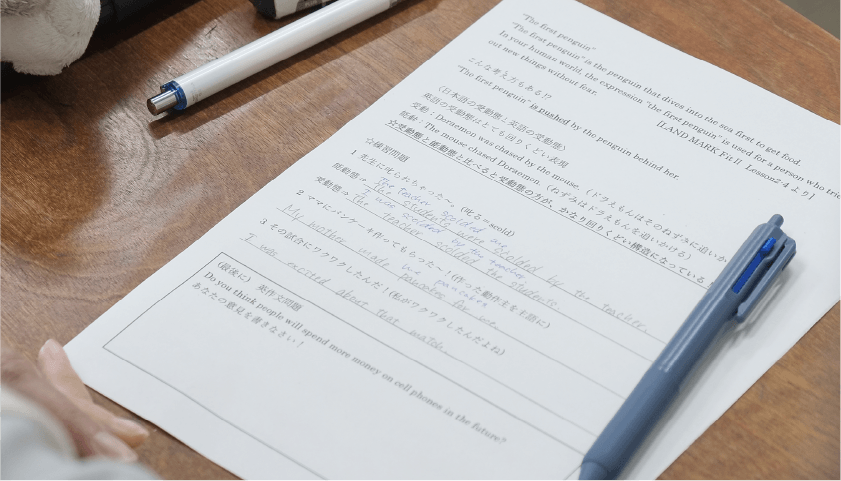 "The first penguin"
"The first penguin" is the penguin that dives into the sea first to get food.
In your human world, the expression "the first penguin" is used for a person who tries
out new things without fear.
[LAND MARK Fit II Lesson2-4 より]
こんな考え方もある!?
"The first penguin" is pushed by the penguin behind her.
〈日本語の受動態と英語の受動態〉
英語の受動態はとても回りくどい表現
受動：Doraemon was chased by the mouse.（ドラえもんはそのねずみに追いか
能動：The mouse chased Doraemon.（ねずみはドラえもんを追いかける）
☆受動態と能動態と比べると受動態の方が、かなり回りくどい構造になっている
☆練習問題
1 先生に叱られちゃった～。（叱る＝scold）
The teacher scolded me.
能動態→ The students were scolded by the teacher.
I was scolded by the teacher
受動態→ The teacher scolded the students
2 ママにパンケーキ作ってもらった～！（作った動作主を主語に）
me pancakes
My mother made pancakes for me.
3 その試合にワクワクしたんだ！（私がワクワクしたんだよね）
I was excited about that match.
（最後に） 英作文問題
Do you think people will spend more money on cell phones in the future?
あなたの意見を書きなさい！